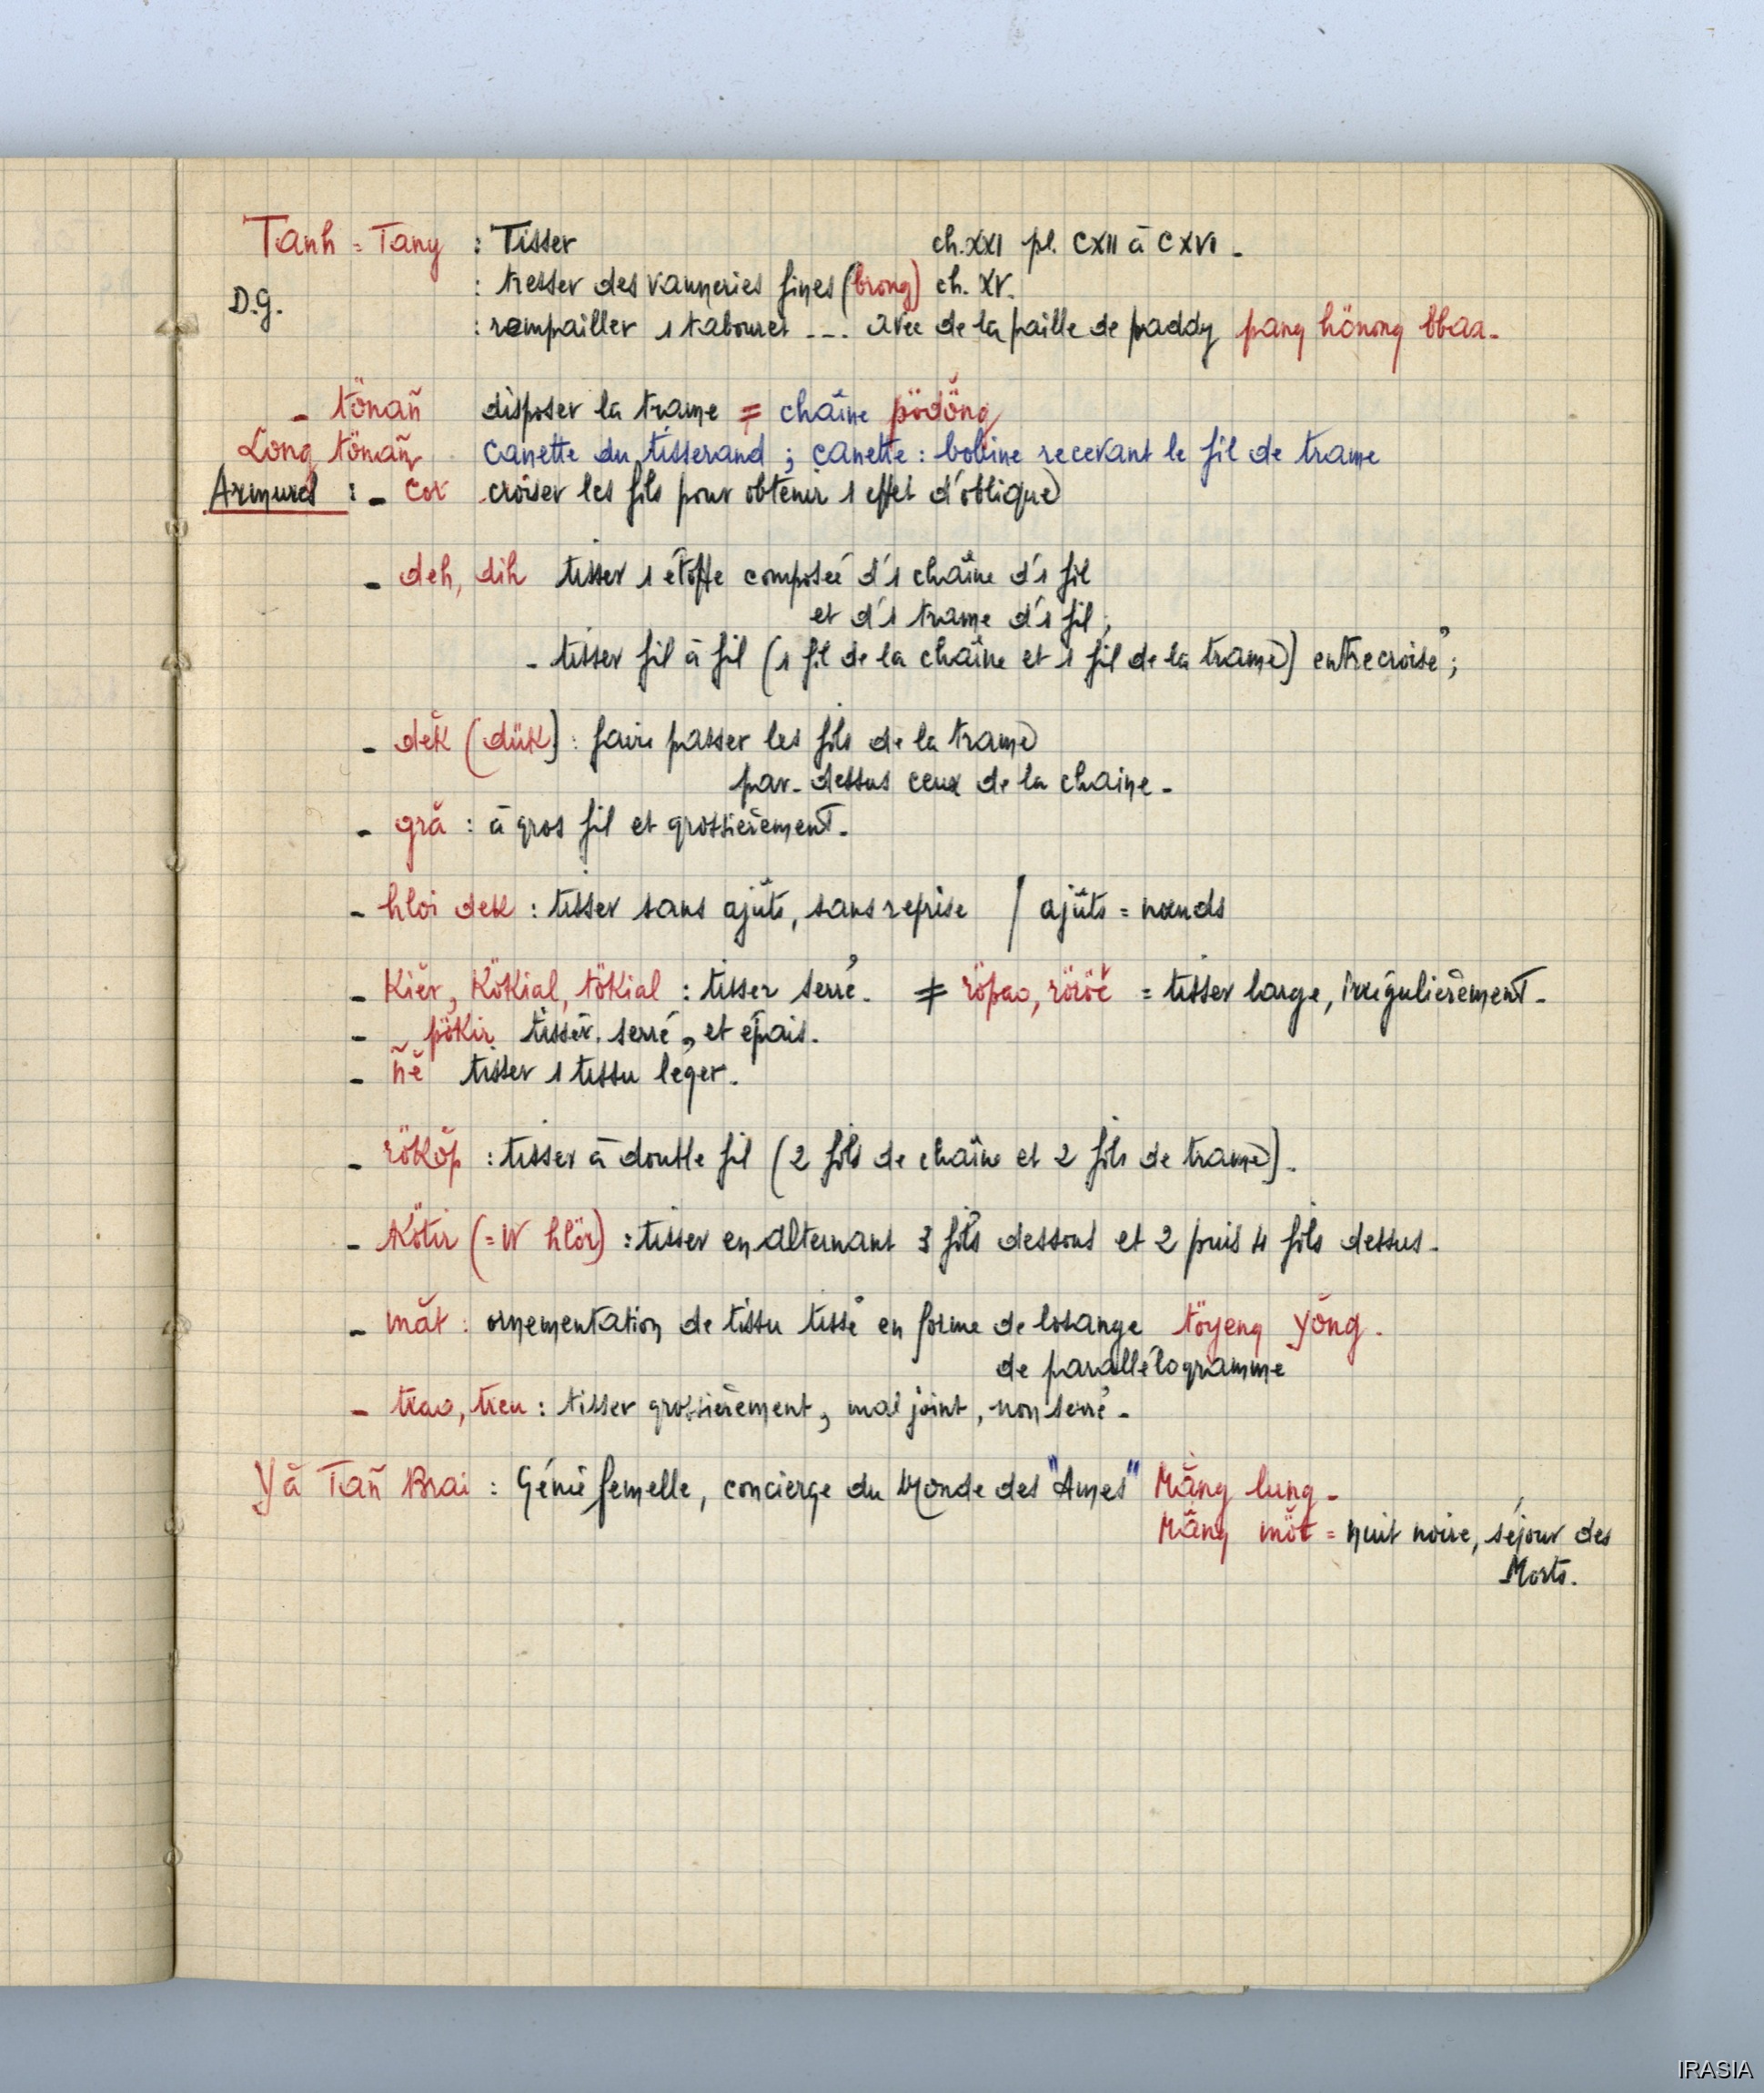 Tanh = Tang : Tisser ch. XXI pl. CXII à CXVI -
: tresser des vanneries fines (brong) ch. XV.
D.G.
: rempailler 1 tabouret --- avec de la paille de paddy pang hönong bbaa-
- tönañ disposer la trame ≠ chaîne pödŏng
Long tönañ canette du tisserand ; canette : bobine recevant le fil de trame
Armures : - cor croiser les fils pour obtenir 1 effet d'oblique
- deh, dih tisser 1 étoffe composée d'1 chaîne d'1 fil
et d'1 trame d'1 fil ;
- tisser fil à fil (1 fil de la chaîne et 1 fil de la trame) entrecroisé ;
- dĕk (dük) : faire passer les fils de la trame
par-dessus ceux de la chaine -
- gră : à gros fil et grossièrement -
- hloi dek : tisser sans ajûts, sans reprise / ajûts = nœuds
- Kiĕr, Kökial, tökial : tisser serré. ≠ röpao, röröĕ = tisser large, irrégulièrement -
- pökir tisser serré, et épais.
- ñĕ tisser 1 tissu léger.
- rökŏp : tisser à double fil (2 fils de chaîne et 2 fils de trame) -
- Kötir (= W hlör) : tisser en alternant 3 fils dessous et 2 puis 4 fils dessus -
- măt : ornementation de tissu tissé en forme de losange töyeng yŏng.
de parallélogramme
- trao, treu : tisser grossièrement, mal joint, non serré -
Yă Tañ Brai : Génie femelle, concierge du Monde des "Ames" Măng lung -
Măng möt = nuit noire, séjour des
Morts.
IRASIA